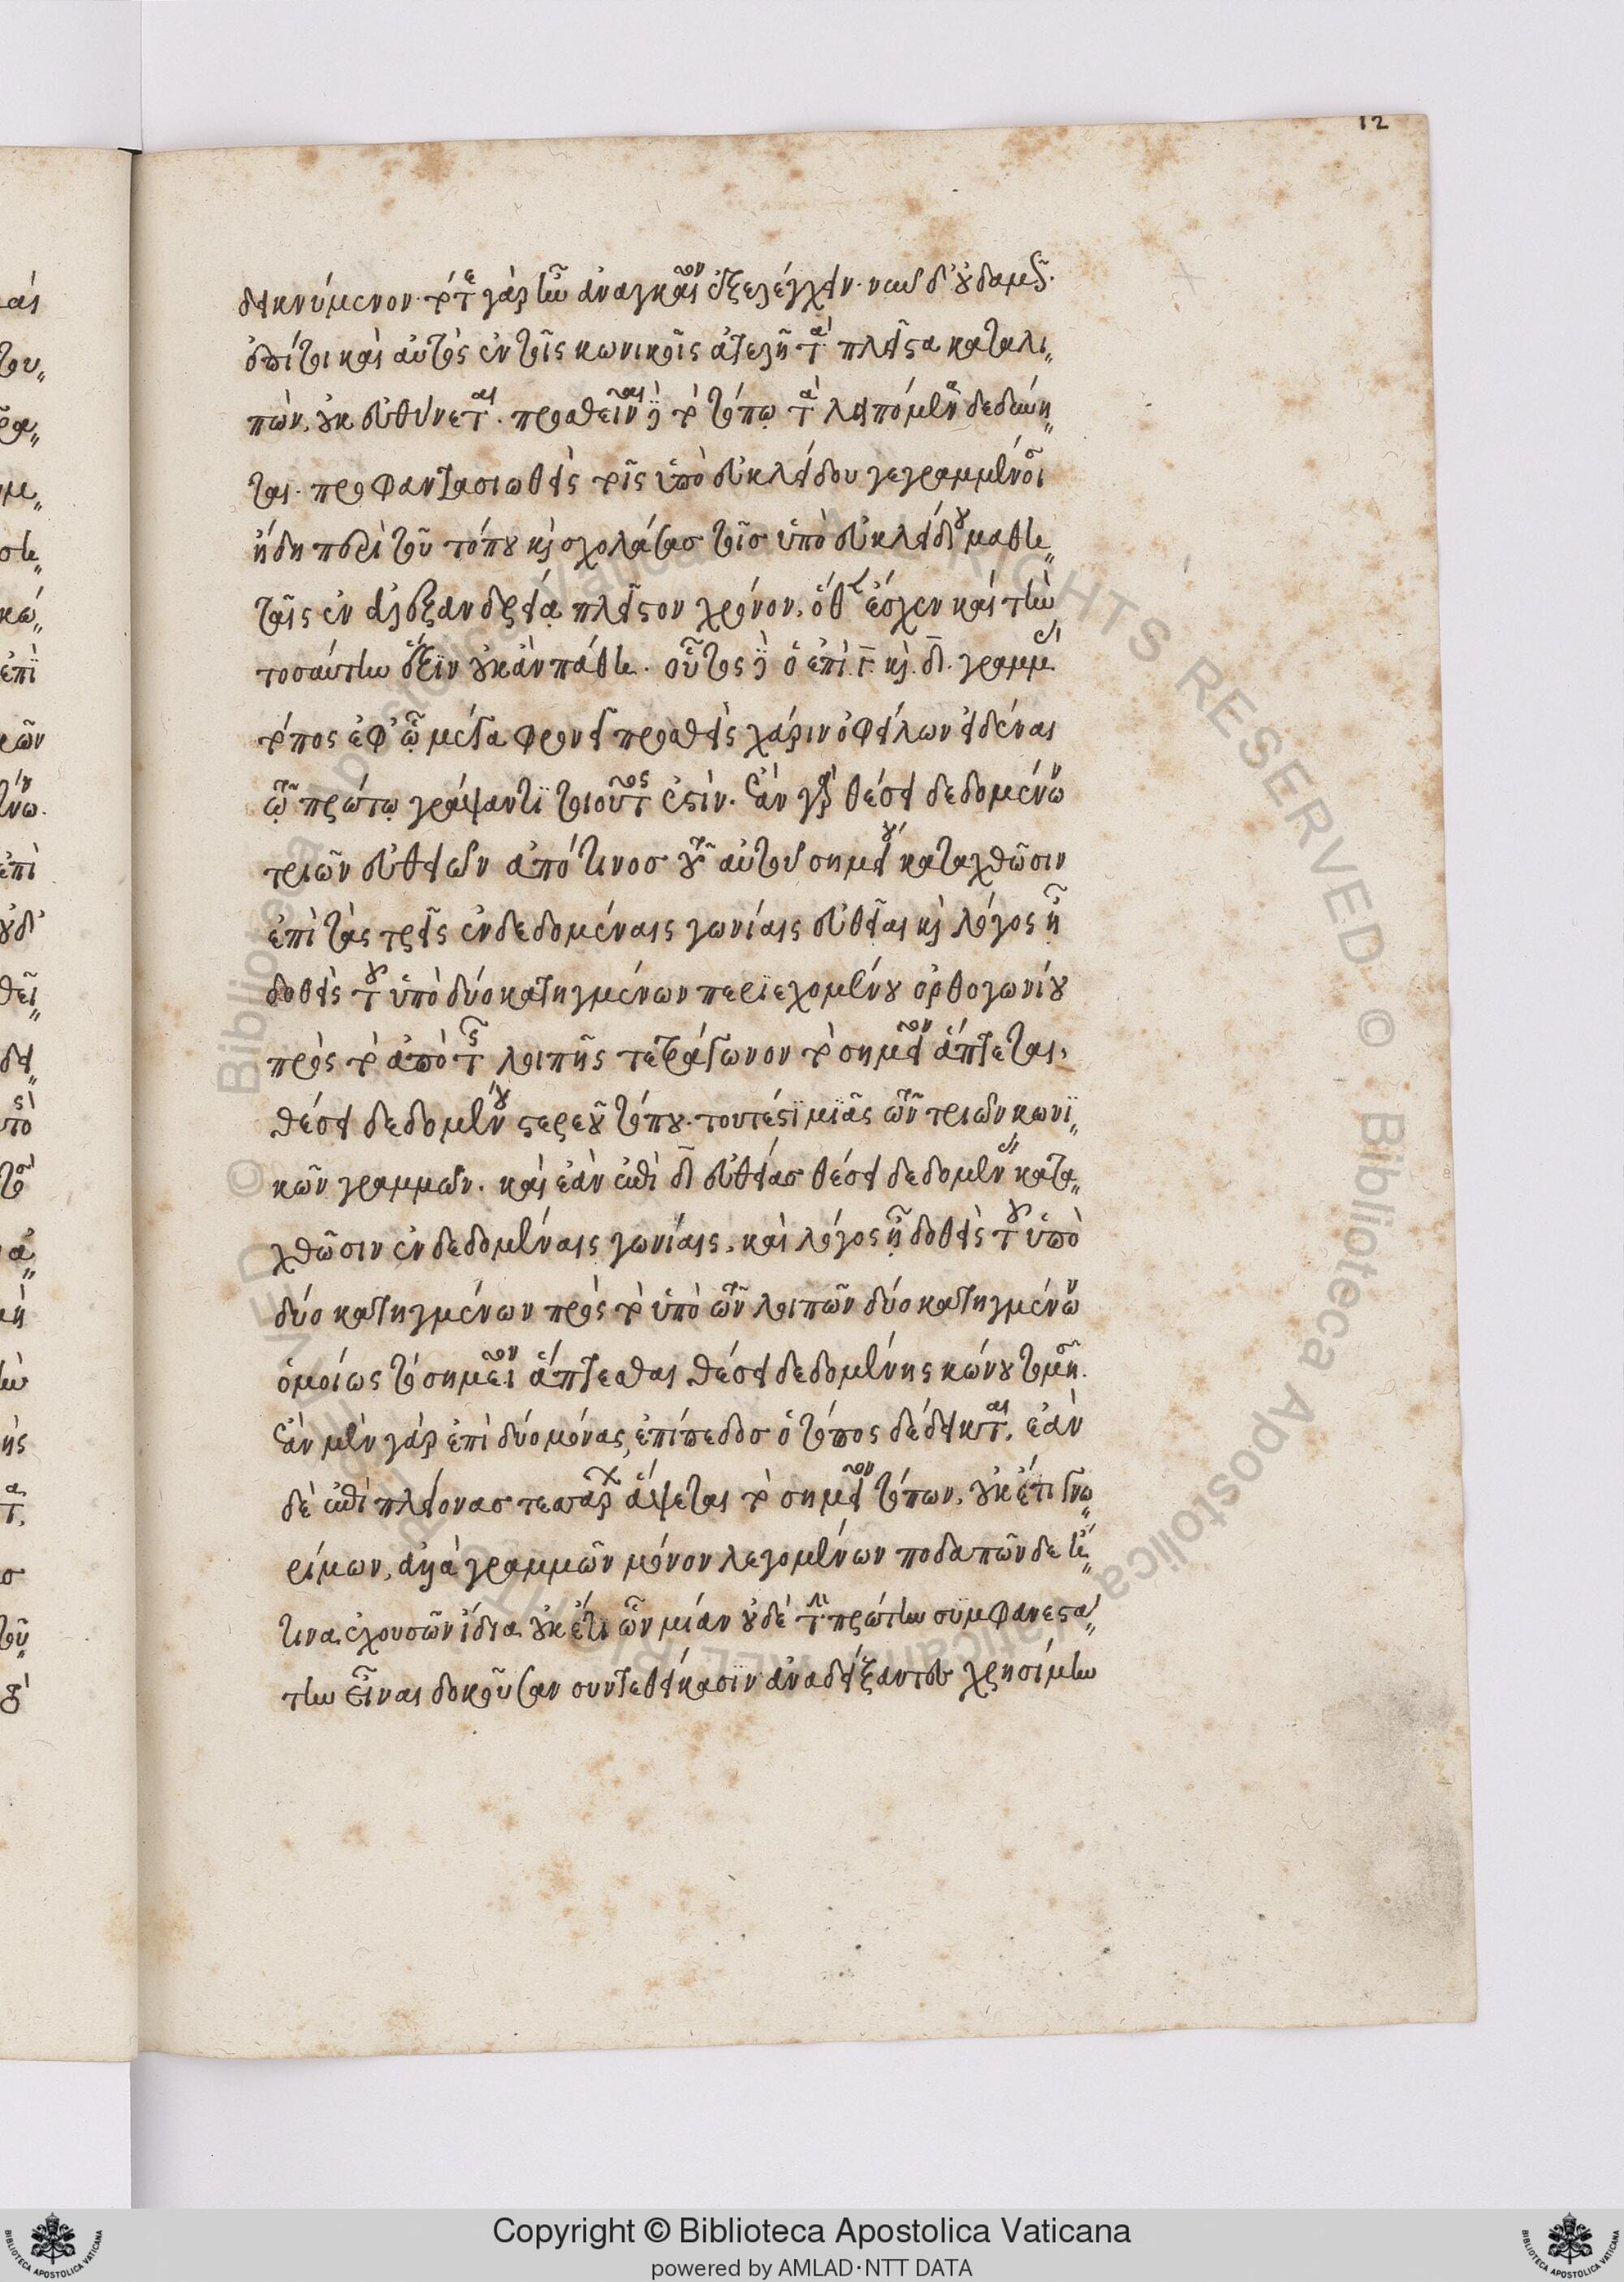 12
δεικνύμενον· τότε γὰρ ἦν ἀναγκαῖον ἐξελέγχειν· νῦν δ' οὐδαμῶς.
ἐπείτοι καὶ αὐτὸς ἐν τοῖς κωνικοῖς ἀτελῆ τὰ πλεῖστα καταλι„
πὼν, οὐκ εὐθύνεται. προσθεῖναι δὲ τῷ τόπῳ τὰ λειπόμενα δεδύνη„
ται. προφαντασιωθεὶς τοῖς ὑπὸ εὐκλείδου γεγραμμένοις
ἤδη περὶ τοῦ τόπου καὶ σχολάσας τοῖς ὑπὸ εὐκλείδου μαθη„
ταῖς ἐν ἀλεξανδρείᾳ πλεῖστον χρόνον. ὅθεν ἔσχεν καὶ τὴν
τοσαύτην ἕξιν οὐκ ἂν πάθη. οὗτος δὲ ὁ ἐπὶ γ̄ καὶ δ̄ γραμμὰς
τόπος ἐφ' ᾧ μέγα φρονεῖ προσθεὶς χάριν ὀφείλων εἰδέναι
τῷ πρώτῳ γράψαντι τοιοῦτος ἐστίν. ἐὰν γὰρ θέσει δεδομένων
τριῶν εὐθειῶν ἀπό τινος τοῦ αὐτοῦ σημείου καταχθῶσιν
ἐπὶ τὰς τρεῖς ἐν δεδομέναις γωνίαις εὐθεῖαι καὶ λόγος ᾖ
δοθεὶς τοῦ ὑπὸ δύο κατηγμένων περιεχομένου ὀρθογωνίου
πρὸς τὸ ἀπὸ τῆς λοιπῆς τετράγωνον τὸ σημεῖον ἅπτεται,
θέσει δεδομένου στερεοῦ τόπου. τουτέστι μιᾶς τῶν τριῶν κωνι„
κῶν γραμμῶν. καὶ ἐὰν ἐπὶ δ̄ εὐθείας θέσει δεδομένας κατα„
χθῶσιν ἐν δεδομέναις γωνίαις, καὶ λόγος ᾖ δοθεὶς τοῦ ὑπὸ
δύο κατηγμένων πρὸς τὸ ὑπὸ τῶν λοιπῶν δύο κατηγμένων
ὁμοίως τὸ σημεῖον ἅπτεσθαι θέσει δεδομένης κώνου τομῆς.
ἐὰν μὲν γὰρ ἐπὶ δύο μόνας, ἐπίπεδος ὁ τόπος δέδεικται, ἐὰν
δὲ ἐπὶ πλείονας τεσσάρων ἅψεται τὸ σημεῖον τόπων, οὐκ ἔτι γνω„
ρίμων, ἀλλὰ γραμμῶν μόνον λεγομένων ποδαπῶν δε ἤ„
τινα ἐχουσῶν ἴδια οὐκ ἔτι ὧν μίαν οὐδὲ τὴν πρώτην συμφανεστά„
την εἶναι δοκοῦσαν συντεθείκασιν ἀναδείξαντες χρησίμην
Copyright © Biblioteca Apostolica Vaticana
powered by AMLAD·NTT DATA